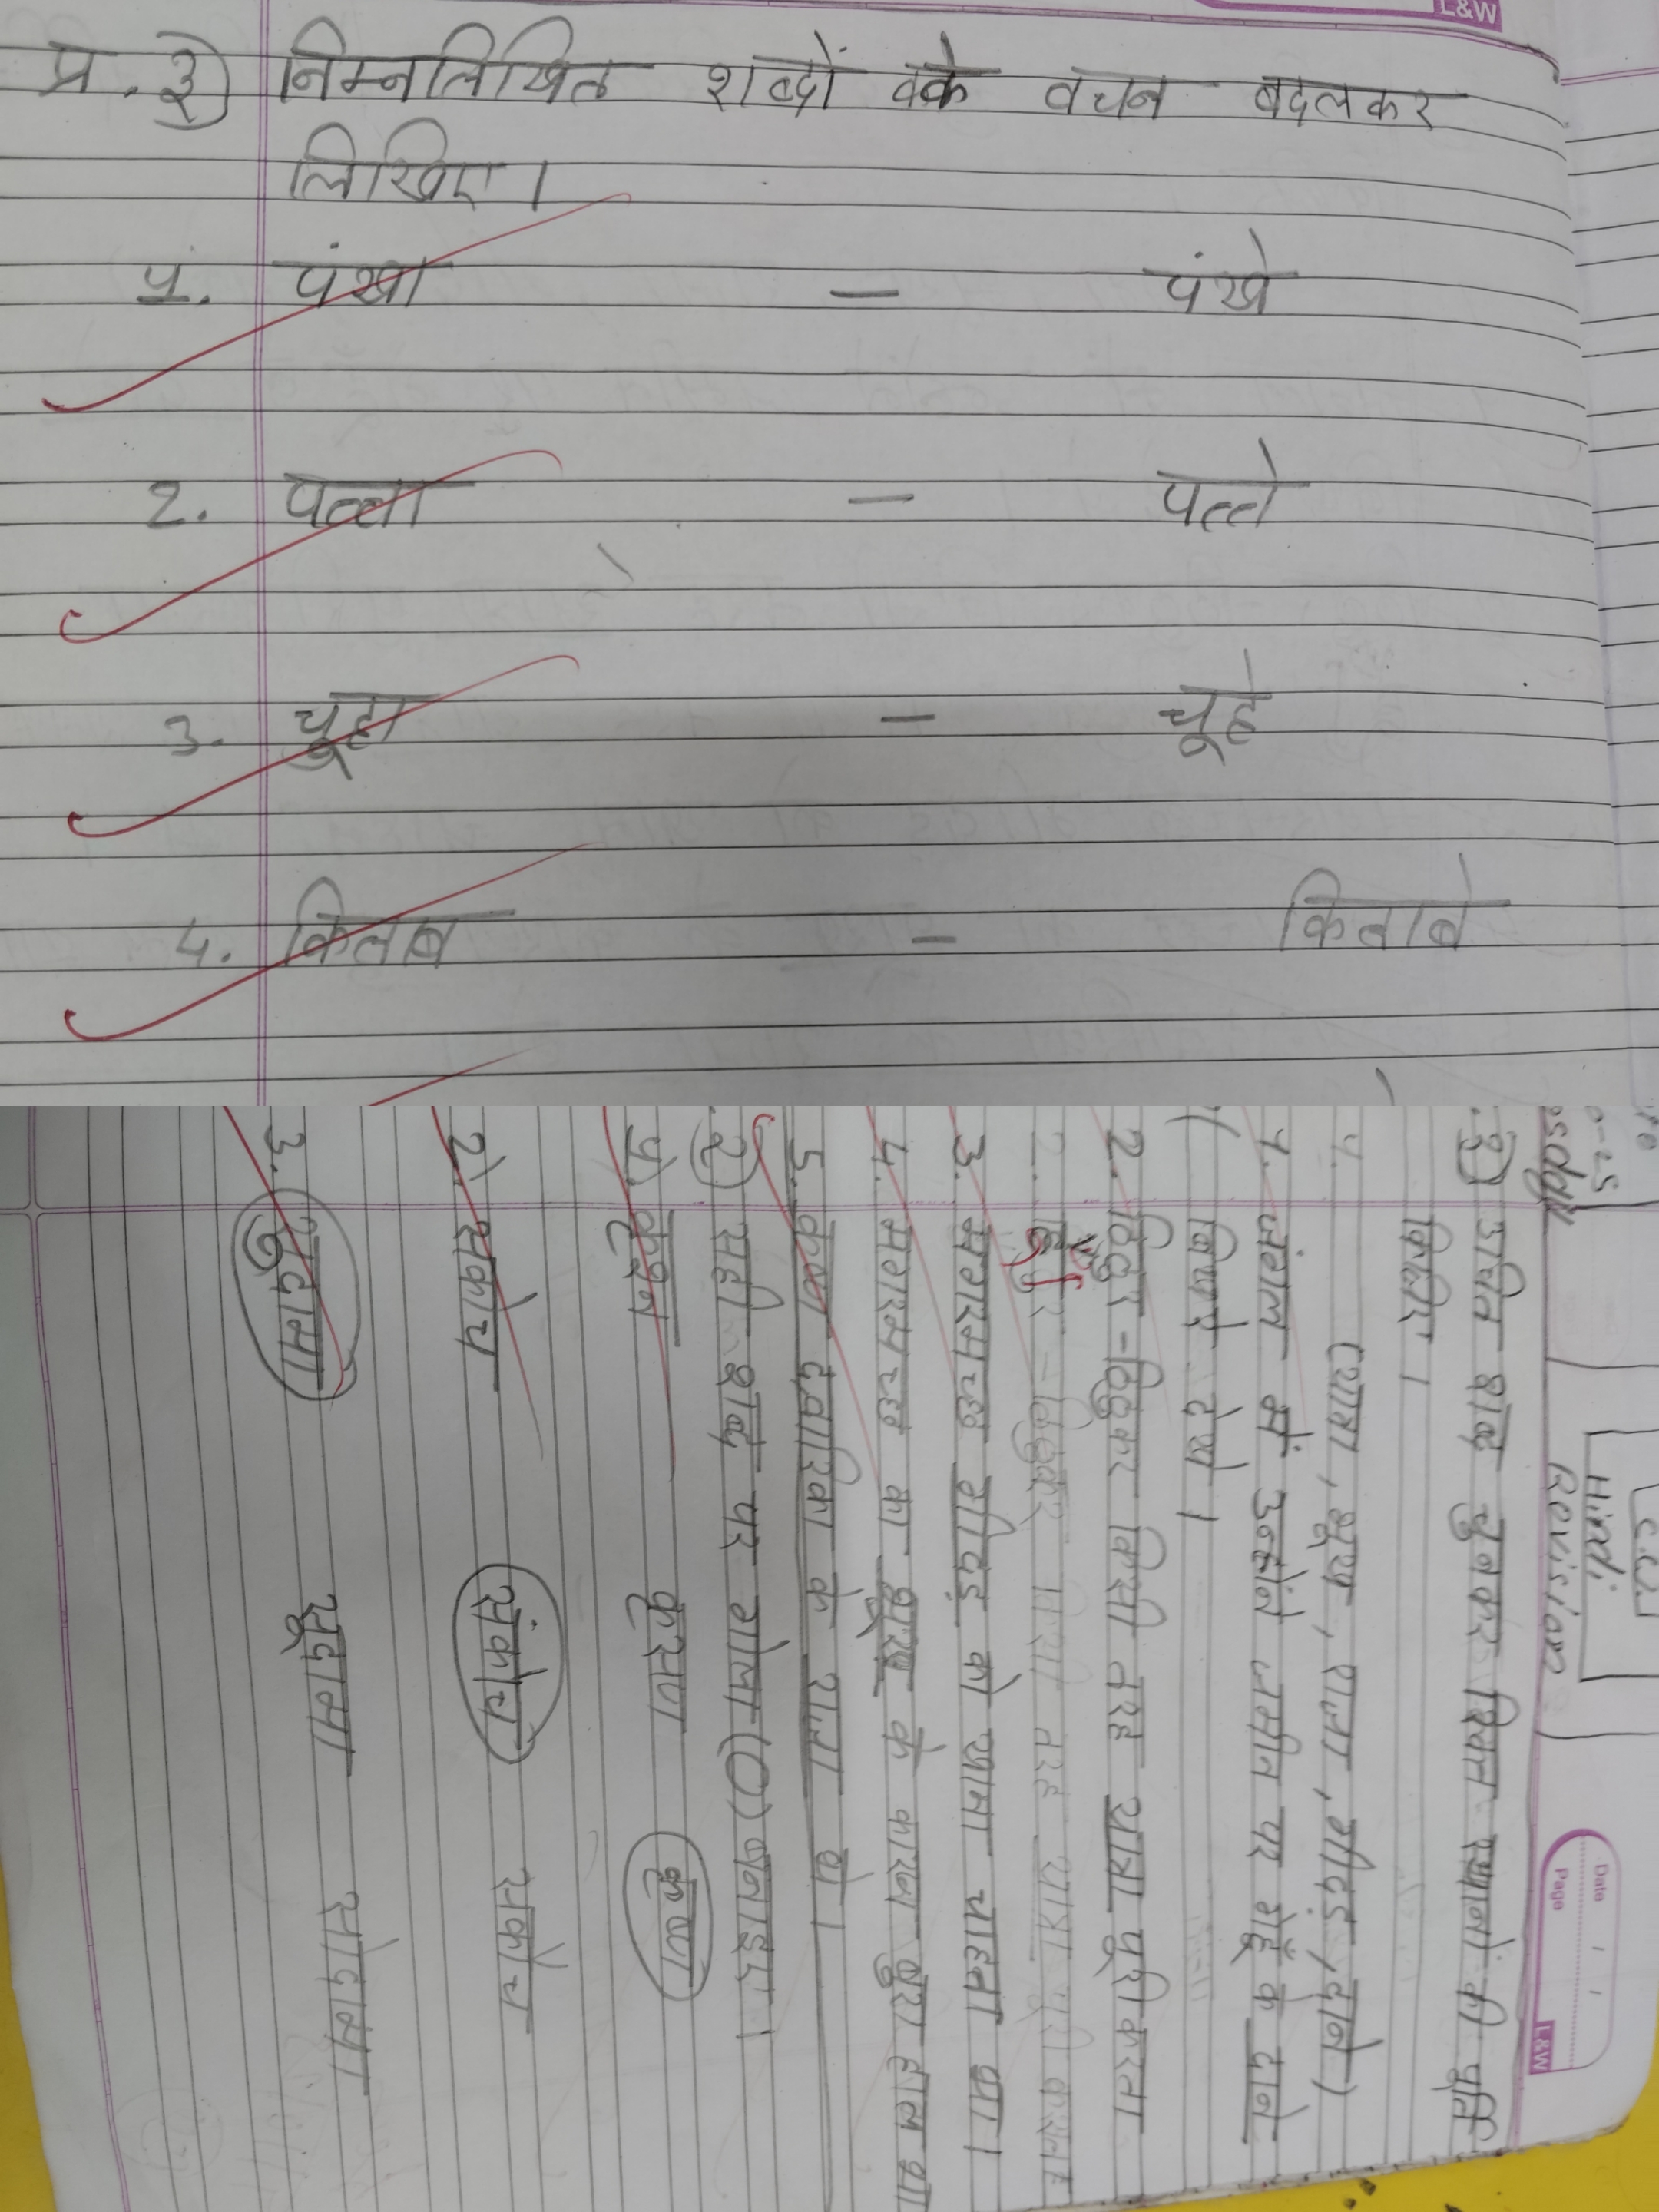 L&W
प्र. ३) निम्नलिखित शब्दों के वचन बदलकर
लिखिए।
१. पंखा – पंखे
2. पत्ता – पत्ते
3. चूहा – चूहे
4. किताब – किताबे
C.W
Hindi
Revision
Date / /
Page
L&W
उचित शब्द चुनकर रिक्त स्थानों की पूर्ति
किजिए।
(यात्रा, भूख, राजा, गीदड़, दाने)
1. जंगल में उन्होंने जमीन पर गेहूँ के दाने
बिखरे देखे।
2. ठिठुर-ठिठुकर किसी तरह यात्रा पूरी करता
3. मगरमच्छ गीदड़ को खाना चाहता था।
4. मगरमच्छ का भूख के कारण बुरा हाल था
5. कृष्ण द्वारिका के राजा थे।
२) सही शब्द पर गोला (O) बनाइए।
१) कृशन कृसण कृष्ण
2) सकोच संकोच सकोंच
3. सुदामा सूदामा सोदामा